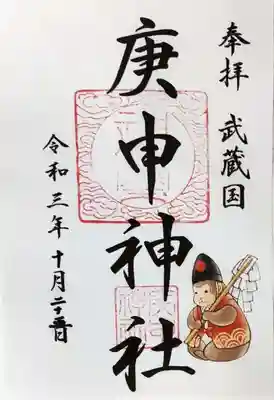 奉拝
武蔵国
庚申神社
令和三年十月二十五日